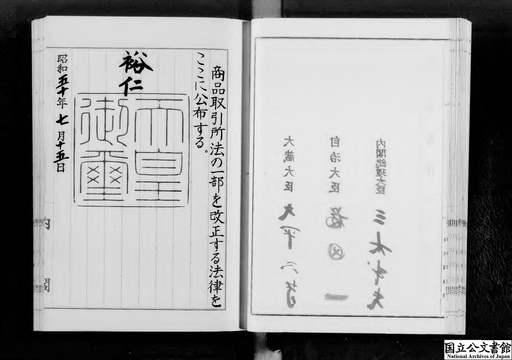 内閣総理大臣 三木武夫
自治大臣 福田一
大蔵大臣 大平正芳
商品取引所法の一部を改正する法律を
ここに公布する。
裕仁
天皇御璽
昭和五十年七月十五日
内閣
国立公文書館
National Archives of Japan